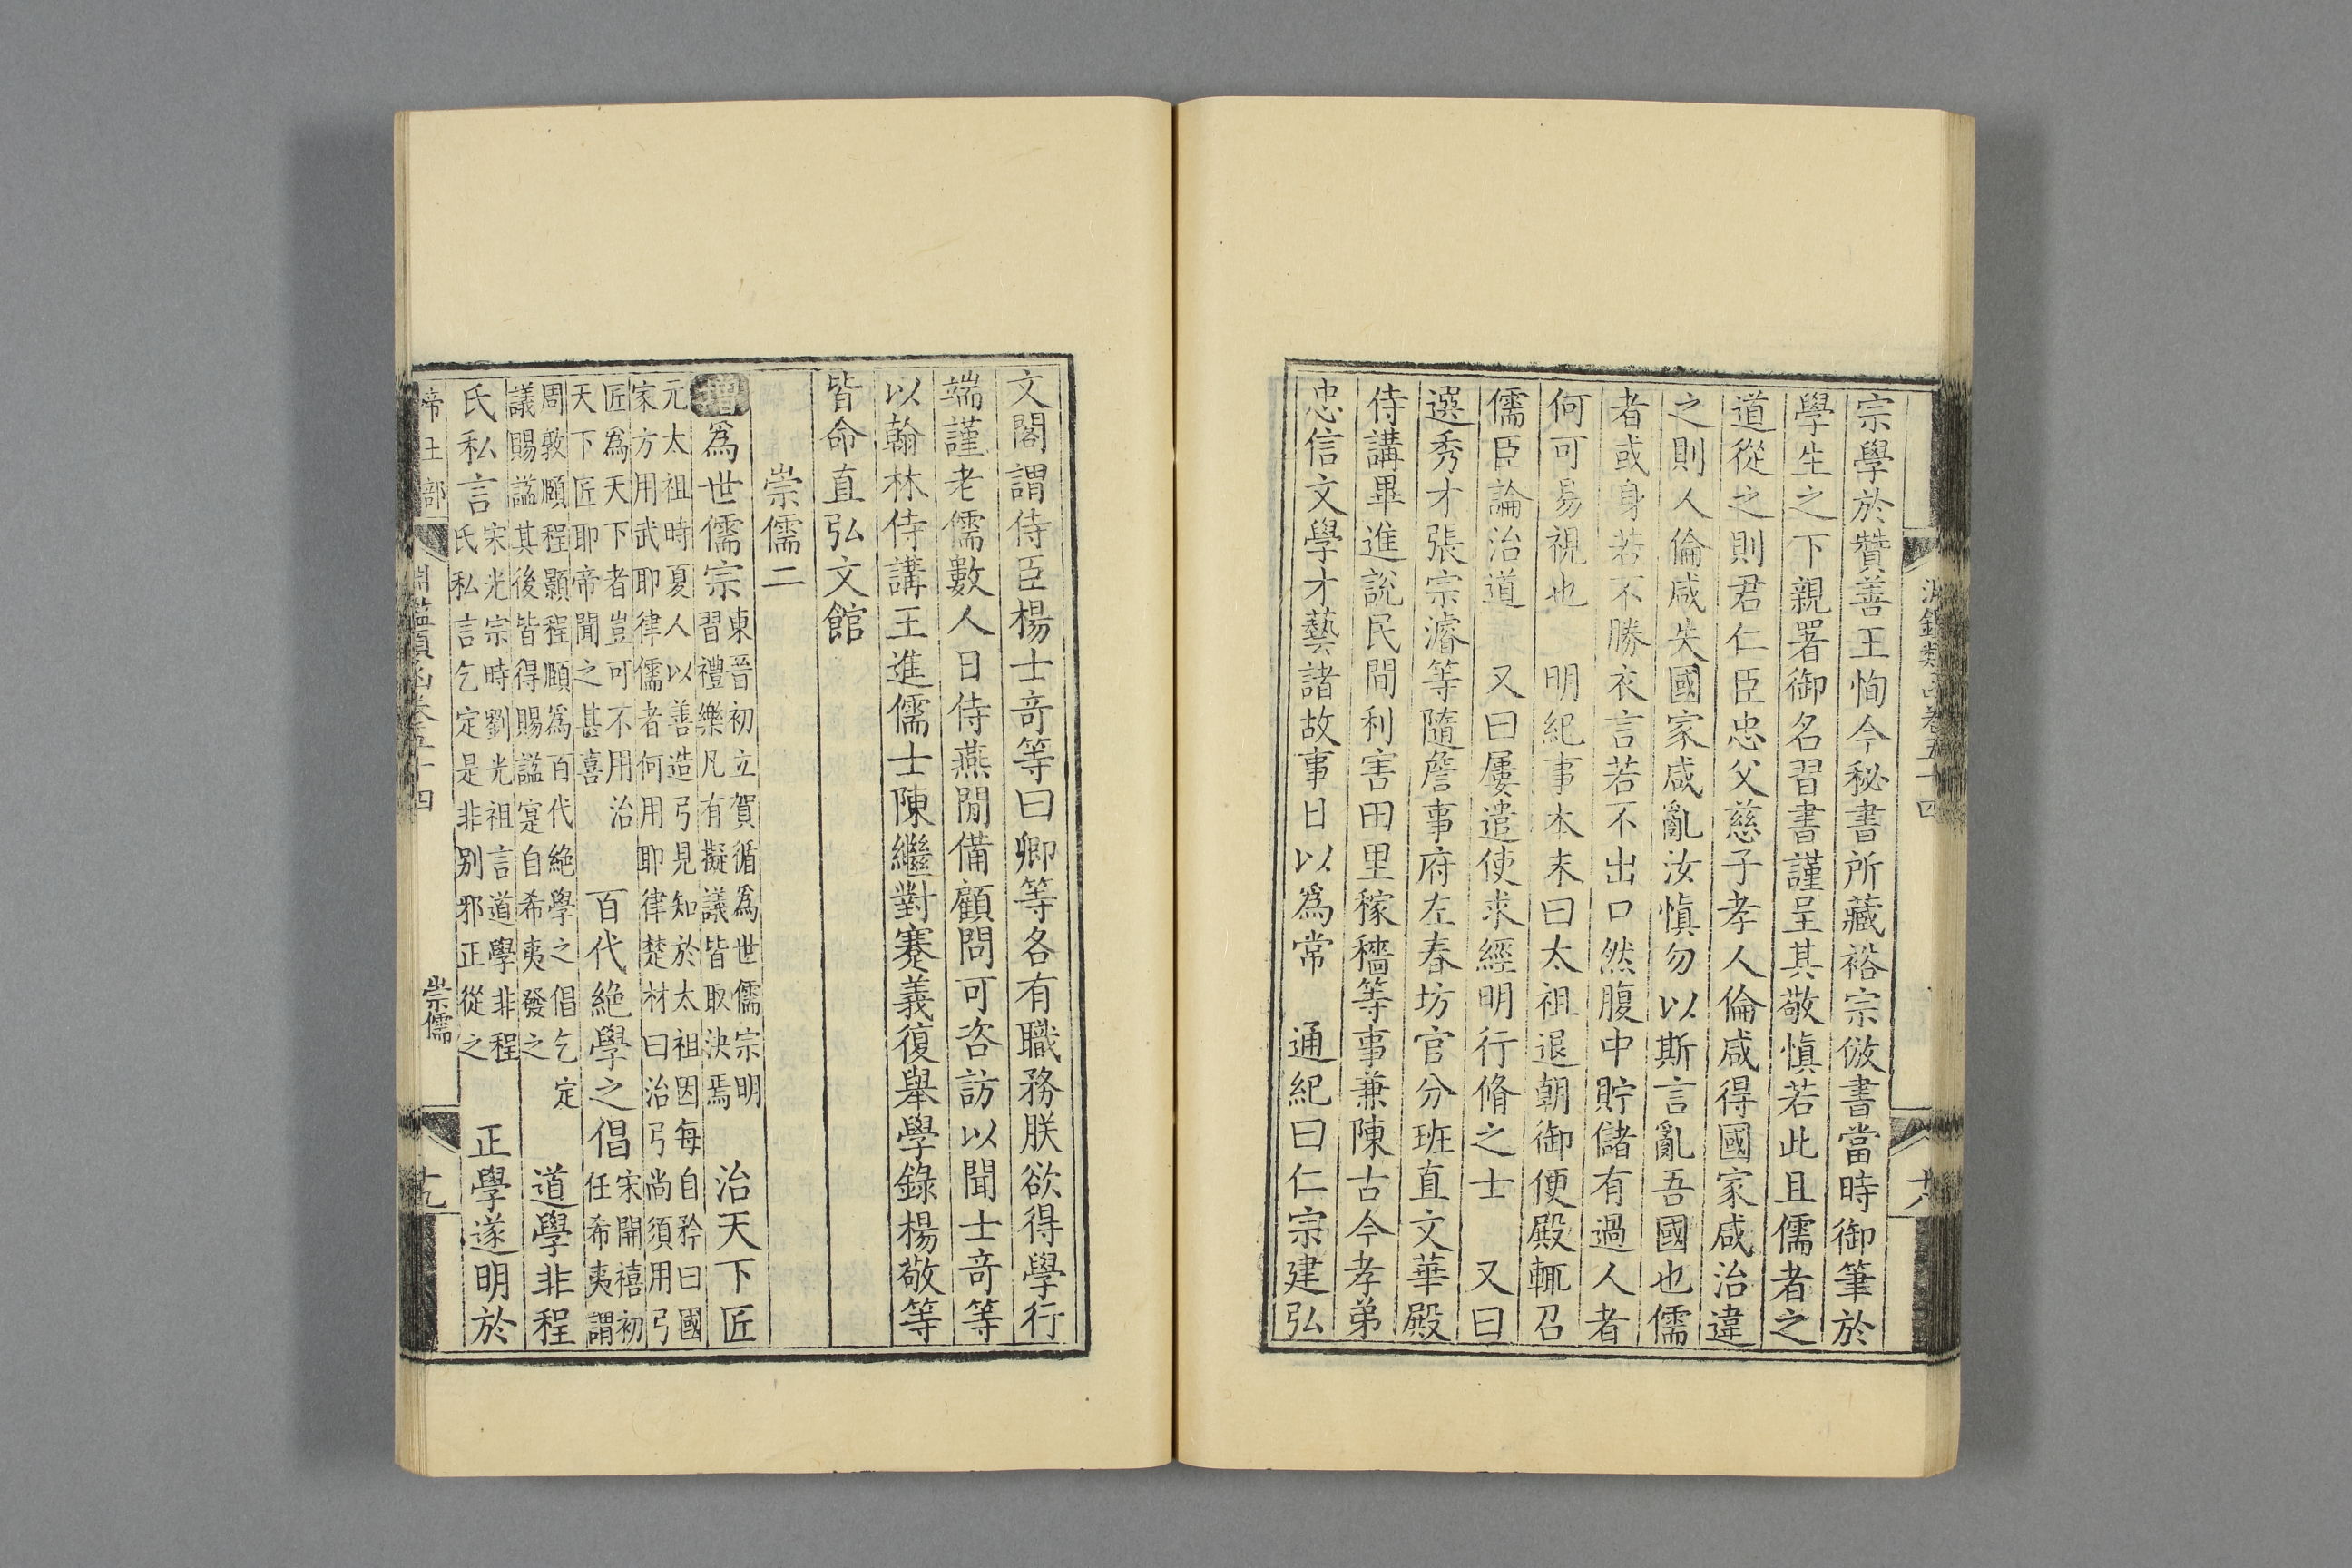 淵鑑類函卷五十四
宗學於贊善王恂今秘書所藏裕宗倣書當時御筆於
學生之下親署御名習書謹呈其敬慎若此且儒者之
道從之則君仁臣忠父慈子孝人倫咸得國家咸治違
之則人倫咸失國家咸亂汝慎勿以斯言亂吾國也儒
者或身若不勝衣言若不出口然腹中貯儲有過人者
何可易視也　明紀事本末曰太祖退朝御便殿輒召
儒臣論治道　又曰屢遣使求經明行脩之士　又曰
選秀才張宗濬等隨詹事府左春坊官分班直文華殿
侍講畢進說民間利害田里稼穡等事兼陳古今孝弟
忠信文學才藝諸故事日以為常　通紀曰仁宗建弘
文閣謂侍臣楊士竒等曰卿等各有職務朕欲得學行
端謹老儒數人日侍燕閒備顧問可咨訪以聞士竒等
以翰林侍講王進儒士陳繼對蹇義復舉學錄楊敬等
皆命直弘文館
崇儒二
增為世儒宗
東晉初立賀循為世儒宗明
習禮樂凡有擬議皆取決焉
治天下匠
元太祖時夏人以善造弓見知於太祖因每自矜曰國
家方用武耶律儒者何用耶律楚材曰治弓尚須用弓
匠為天下者豈可不用治
天下匠耶帝聞之甚喜
百代絕學之倡
宋開禧初
任希夷謂
周敦頤程顥程頤為百代絕學之倡乞定
議賜謚其後皆得賜謚寔自希夷發之
道學非程
氏私言
宋光宗時劉光祖言道學非程
氏私言乞定是非別邪正從之
正學遂明於
帝王部
淵鑑類函卷五十四
崇儒
十九